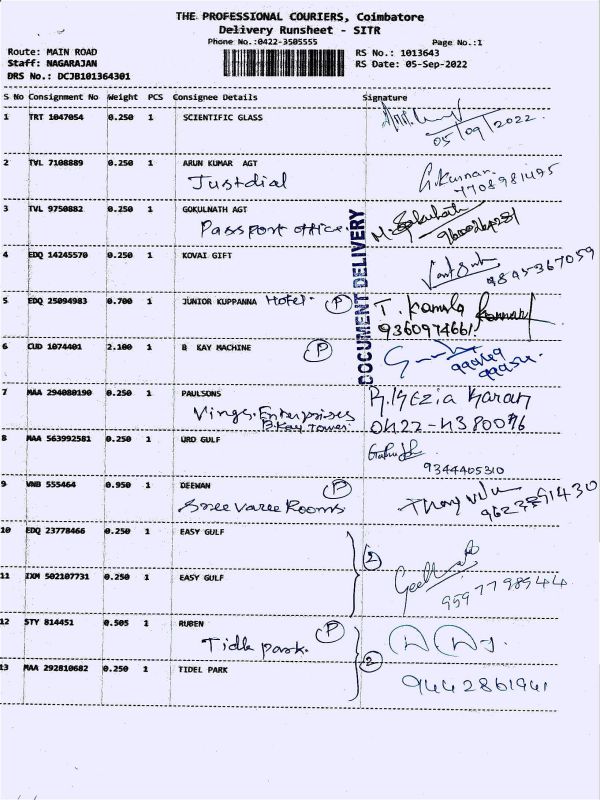 THE PROFESSIONAL COURIERS, Coimbatore
Delivery Runsheet - SITR
Phone No.:0422-3505555 Page No.:1
Route: MAIN ROAD RS No.: 1013643
Staff: NAGARAJAN RS Date: 05-Sep-2022
DRS No.: DCJB101364301
S No Consignment No Weight PCS Consignee Details Signature
1 TRT 1047054 0.250 1 SCIENTIFIC GLASS
05/09/2022.
2 TVL 7108889 0.250 1 ARUN KUMAR AGT
Justdial
7708981495
3 TVL 9750882 0.250 1 GOKULNATH AGT
Passport office.
4 EDQ 14245570 0.250 1 KOVAI GIFT
9845367059
5 EDQ 25094983 0.700 1 JUNIOR KUPPANNA Hotel. P T. Kamala
9360974661
6 CUD 1074401 2.100 1 B KAY MACHINE P
DOCUMENT DELIVERY
7 MAA 294080190 0.250 1 PAULSONS R. Kezia Karan
Vings. Enterprises
B.Kay Tower
8 MAA 563992581 0.250 1 URD GULF
9344405310
9 VNB 555464 0.950 1 DEEWAN P
Sree varee Rooms
10 EDQ 23778466 0.250 1 EASY GULF 2
11 IXM 502107731 0.250 1 EASY GULF
9597798944
12 STY 814451 0.505 1 RUBEN P
Tidle park. 2
13 MAA 292810682 0.250 1 TIDEL PARK
9442861941